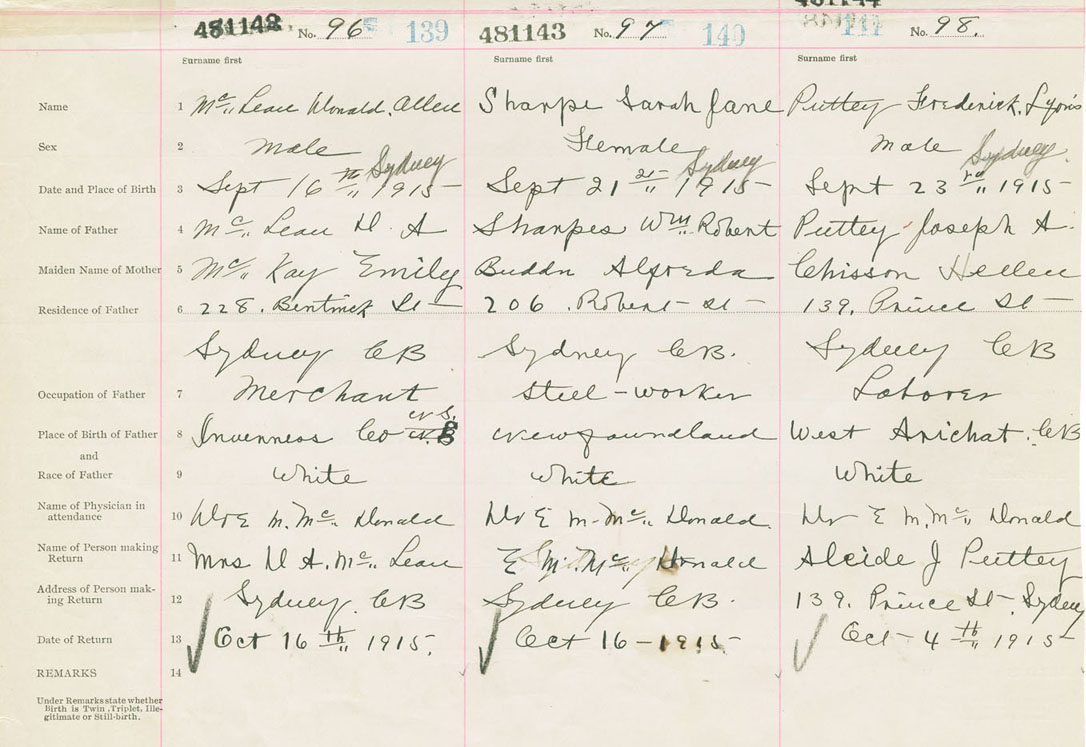 481143 No. 96 139 481143 No. 97 140 No. 98.
Surname first Surname first Surname first
Name 1 Mc Lean Donald. Allen Sharpe Sarah Jane Puttey Frederick. Lyons
Sex 2 Male Female Male
Sydney Sydney Sydney
Date and Place of Birth 3 Sept 16th 1915 Sept 21 1915 Sept 23rd 1915
Name of Father 4 Mc Lean D A Sharpes Wm. Robert Puttey Joseph A.
Maiden Name of Mother 5 Mc Kay Emily Alfreda Chisson Hellen
Residence of Father 6 228. Bentinck St 206. Robert St 139. Prince St
Sydney CB Sydney CB. Sydney CB
Occupation of Father 7 Merchant Steel-worker Laborer
N.S.
Place of Birth of Father 8 Inverness Co Newfoundland West Arichat. CB
and
Race of Father 9 White White White
Name of Physician in
attendance 10 Dr E M. Mc Donald Dr E M. Mc Donald. Dr E M. Mc Donald
Name of Person making
Return 11 Mrs D A. Mc Lean E M. Mc Donald Alcide J Puttey
Address of Person mak-
ing Return 12 Sydney. CB Sydney CB. 139. Prince St. Sydney
Date of Return 13 Oct 16th 1915. Oct 16 - 1915. Oct - 4th 1915
REMARKS 14
Under Remarks state whether
Birth is Twin, Triplet, Ille-
gitimate or Still-birth.